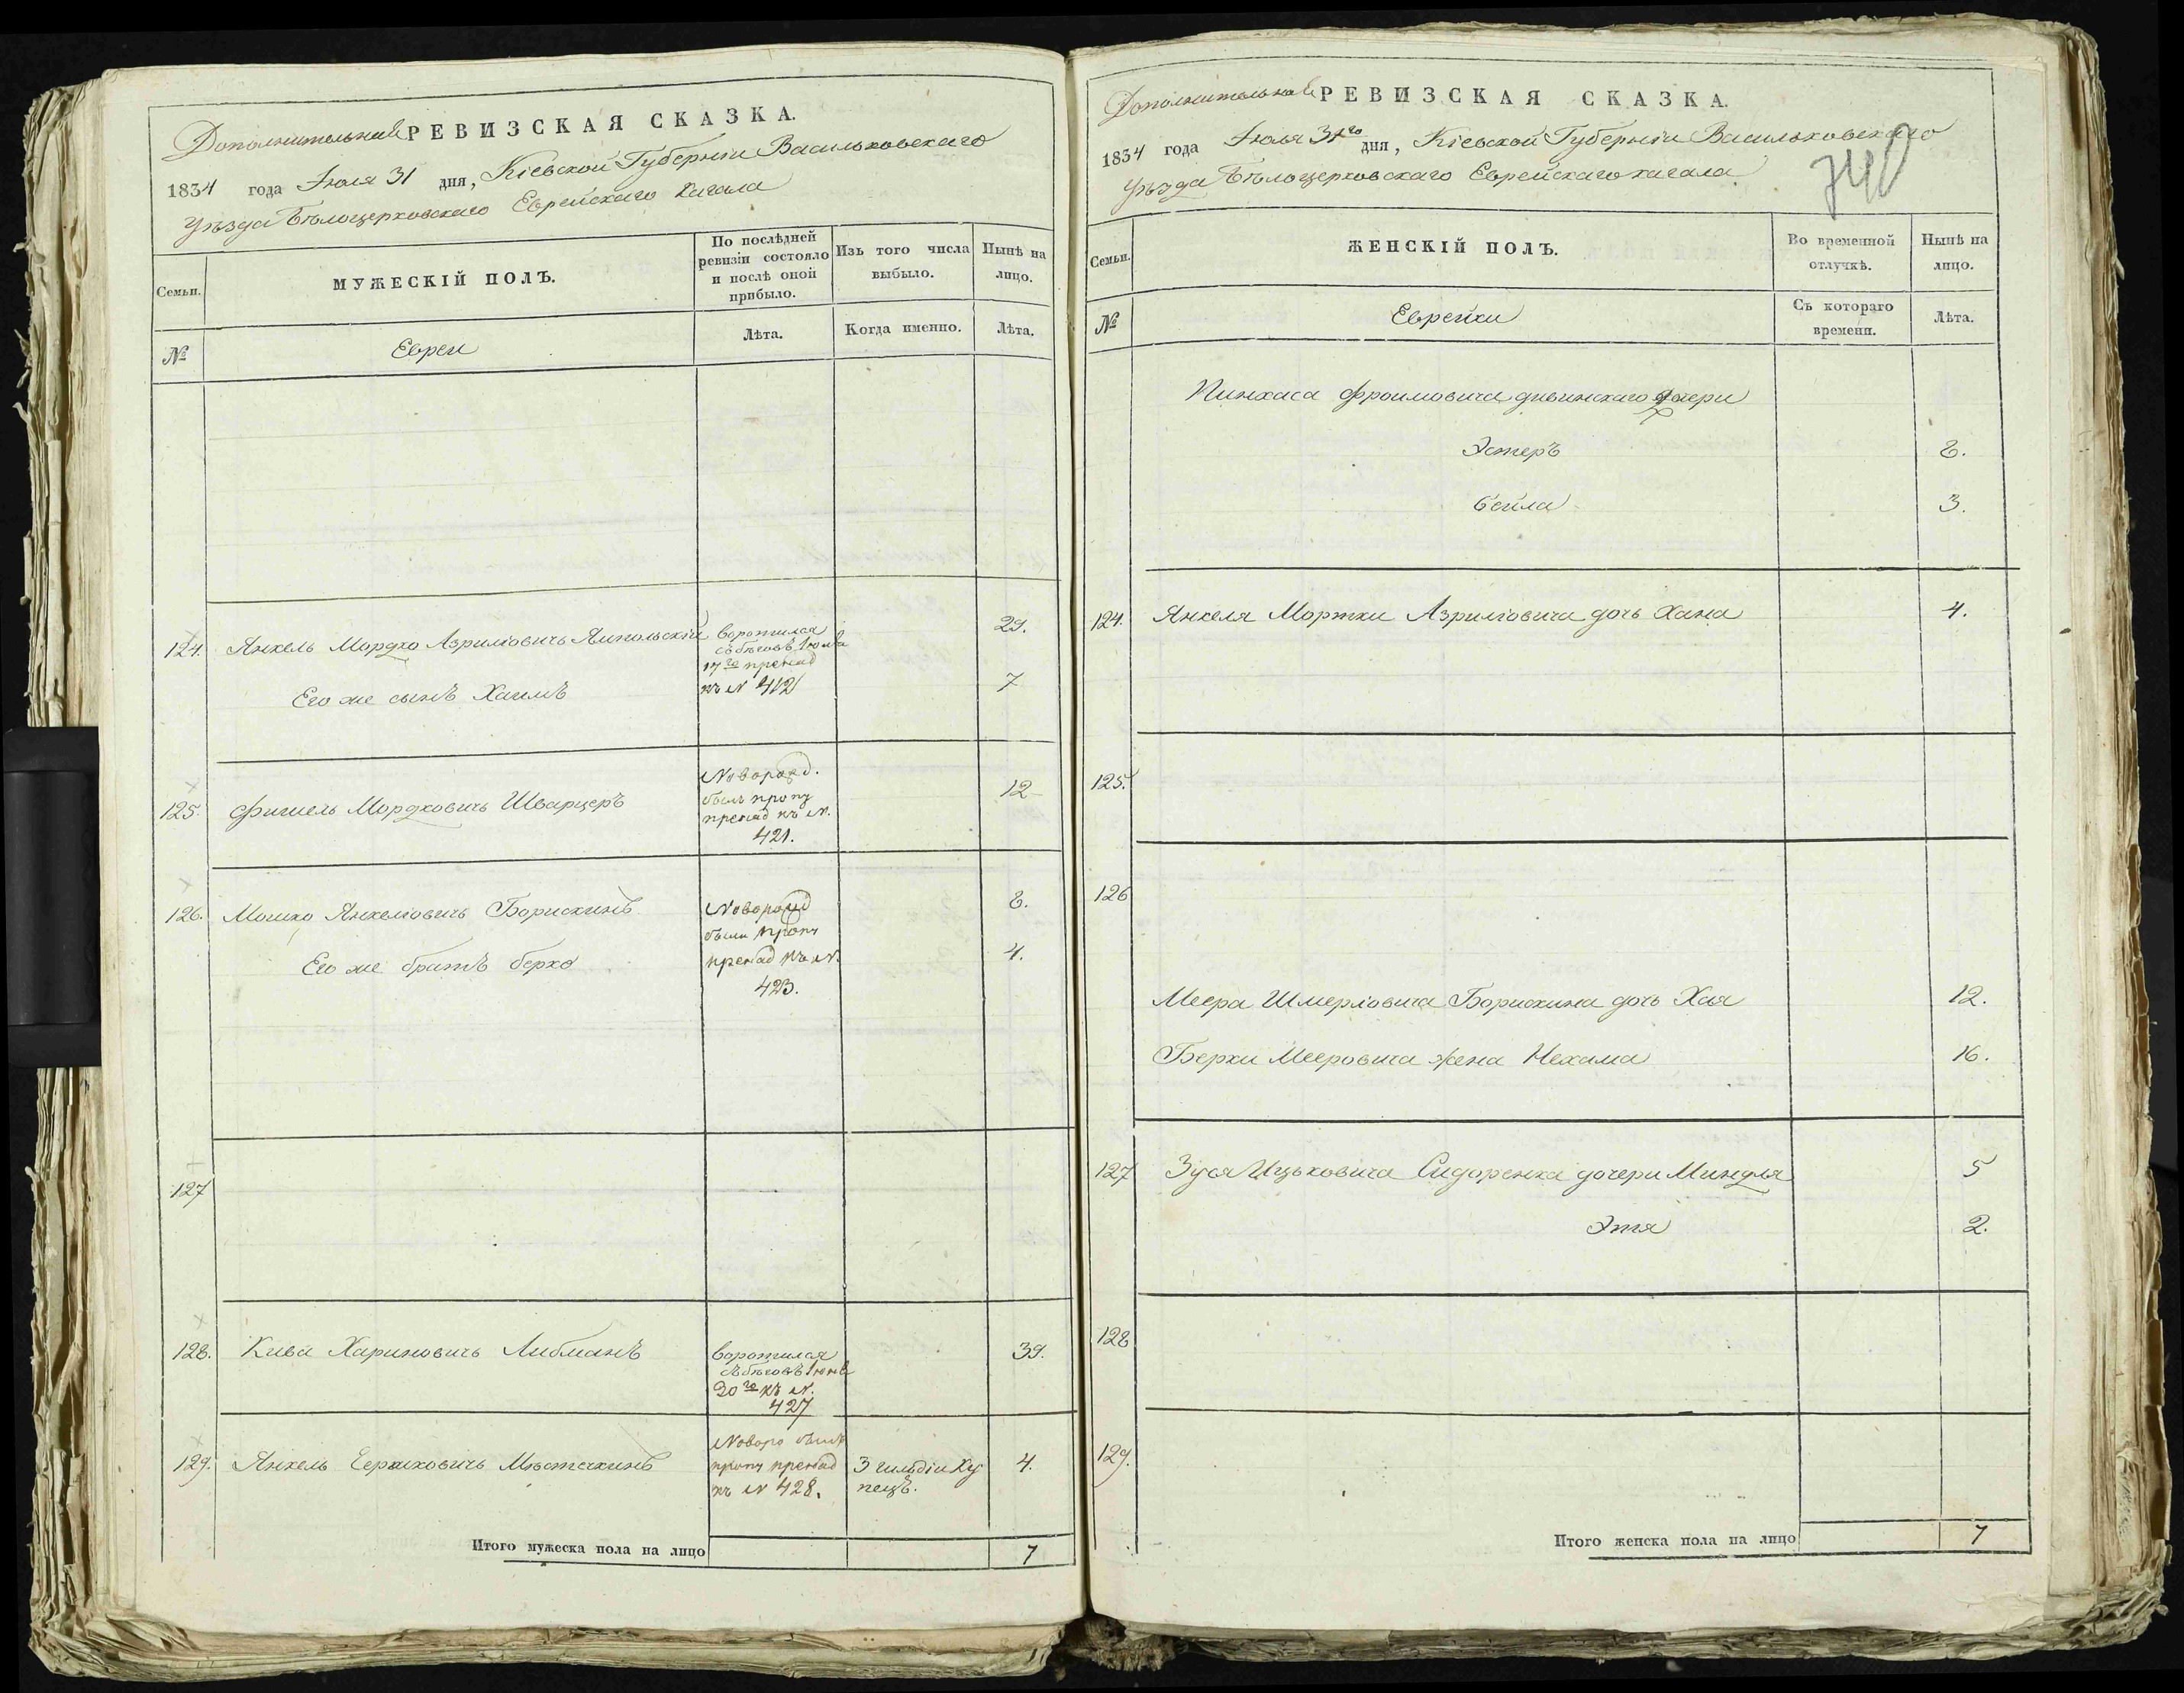 Дополнительная РЕВИЗСКАЯ СКАЗКА.
1834 года Іюля 31 дня, Кіевской Губерніи Васильковскаго
Уѣзда Бѣлоцерковскаго Еврейскаго Кагала
Семьи.
МУЖЕСКІЙ ПОЛЪ.
По послѣдней
ревизіи состояло
и послѣ оной
прибыло.
Изъ того числа
выбыло.
Нынѣ на
лицо.
№
Евреи
Лѣта.
Когда именно.
Лѣта.
124. Янкель Мордко Азриліовичъ Ямпольскій
воротился
съ бѣговъ Іюня
17го принад
къ № 412
29.
Его же сынъ Хаимъ
7
125. Фишель Мордковичъ Шварцеръ
Новорожд.
былъ проп
принад къ №.
421.
12
126. Мошко Янкеліовичъ Борискинъ
Новорожд
были проп
принад къ №.
423.
8.
Его же братъ берко
4.
127
128. Кива Хариновичъ Либманъ
воротился
съ бѣговъ Іюня
20го къ №.
427
39.
129. Янкель Мѣстечкинъ
Новоро былъ
проп принад
къ № 428.
3 гильдіи Ку
пецъ.
4.
Итого мужеска пола на лицо
7
Дополнительная РЕВИЗСКАЯ СКАЗКА.
1834 года Іюля 31го дня, Кіевской Губерніи Васильковскаго
Уѣзда Бѣлоцерковскаго Еврейскаго кагала
740
Семьи.
ЖЕНСКІЙ ПОЛЪ.
Во временной
отлучкѣ.
Нынѣ на
лицо.
№
Еврейки
Съ котораго
времени.
Лѣта.
Пинхаса Фроимовича дочери
Эстеръ 8.
бейла 3.
124. Янкеля Мортки Азриліовича дочь Хана 4.
125.
126
Меера Шмеріовича Борискина дочь Хая 12.
Берки Мееровича жена Нехама 16.
127 Зуся Ицьковича Сидоренка дочери Миндля 5
Этя 2.
128
129.
Итого женска пола на лицо
7